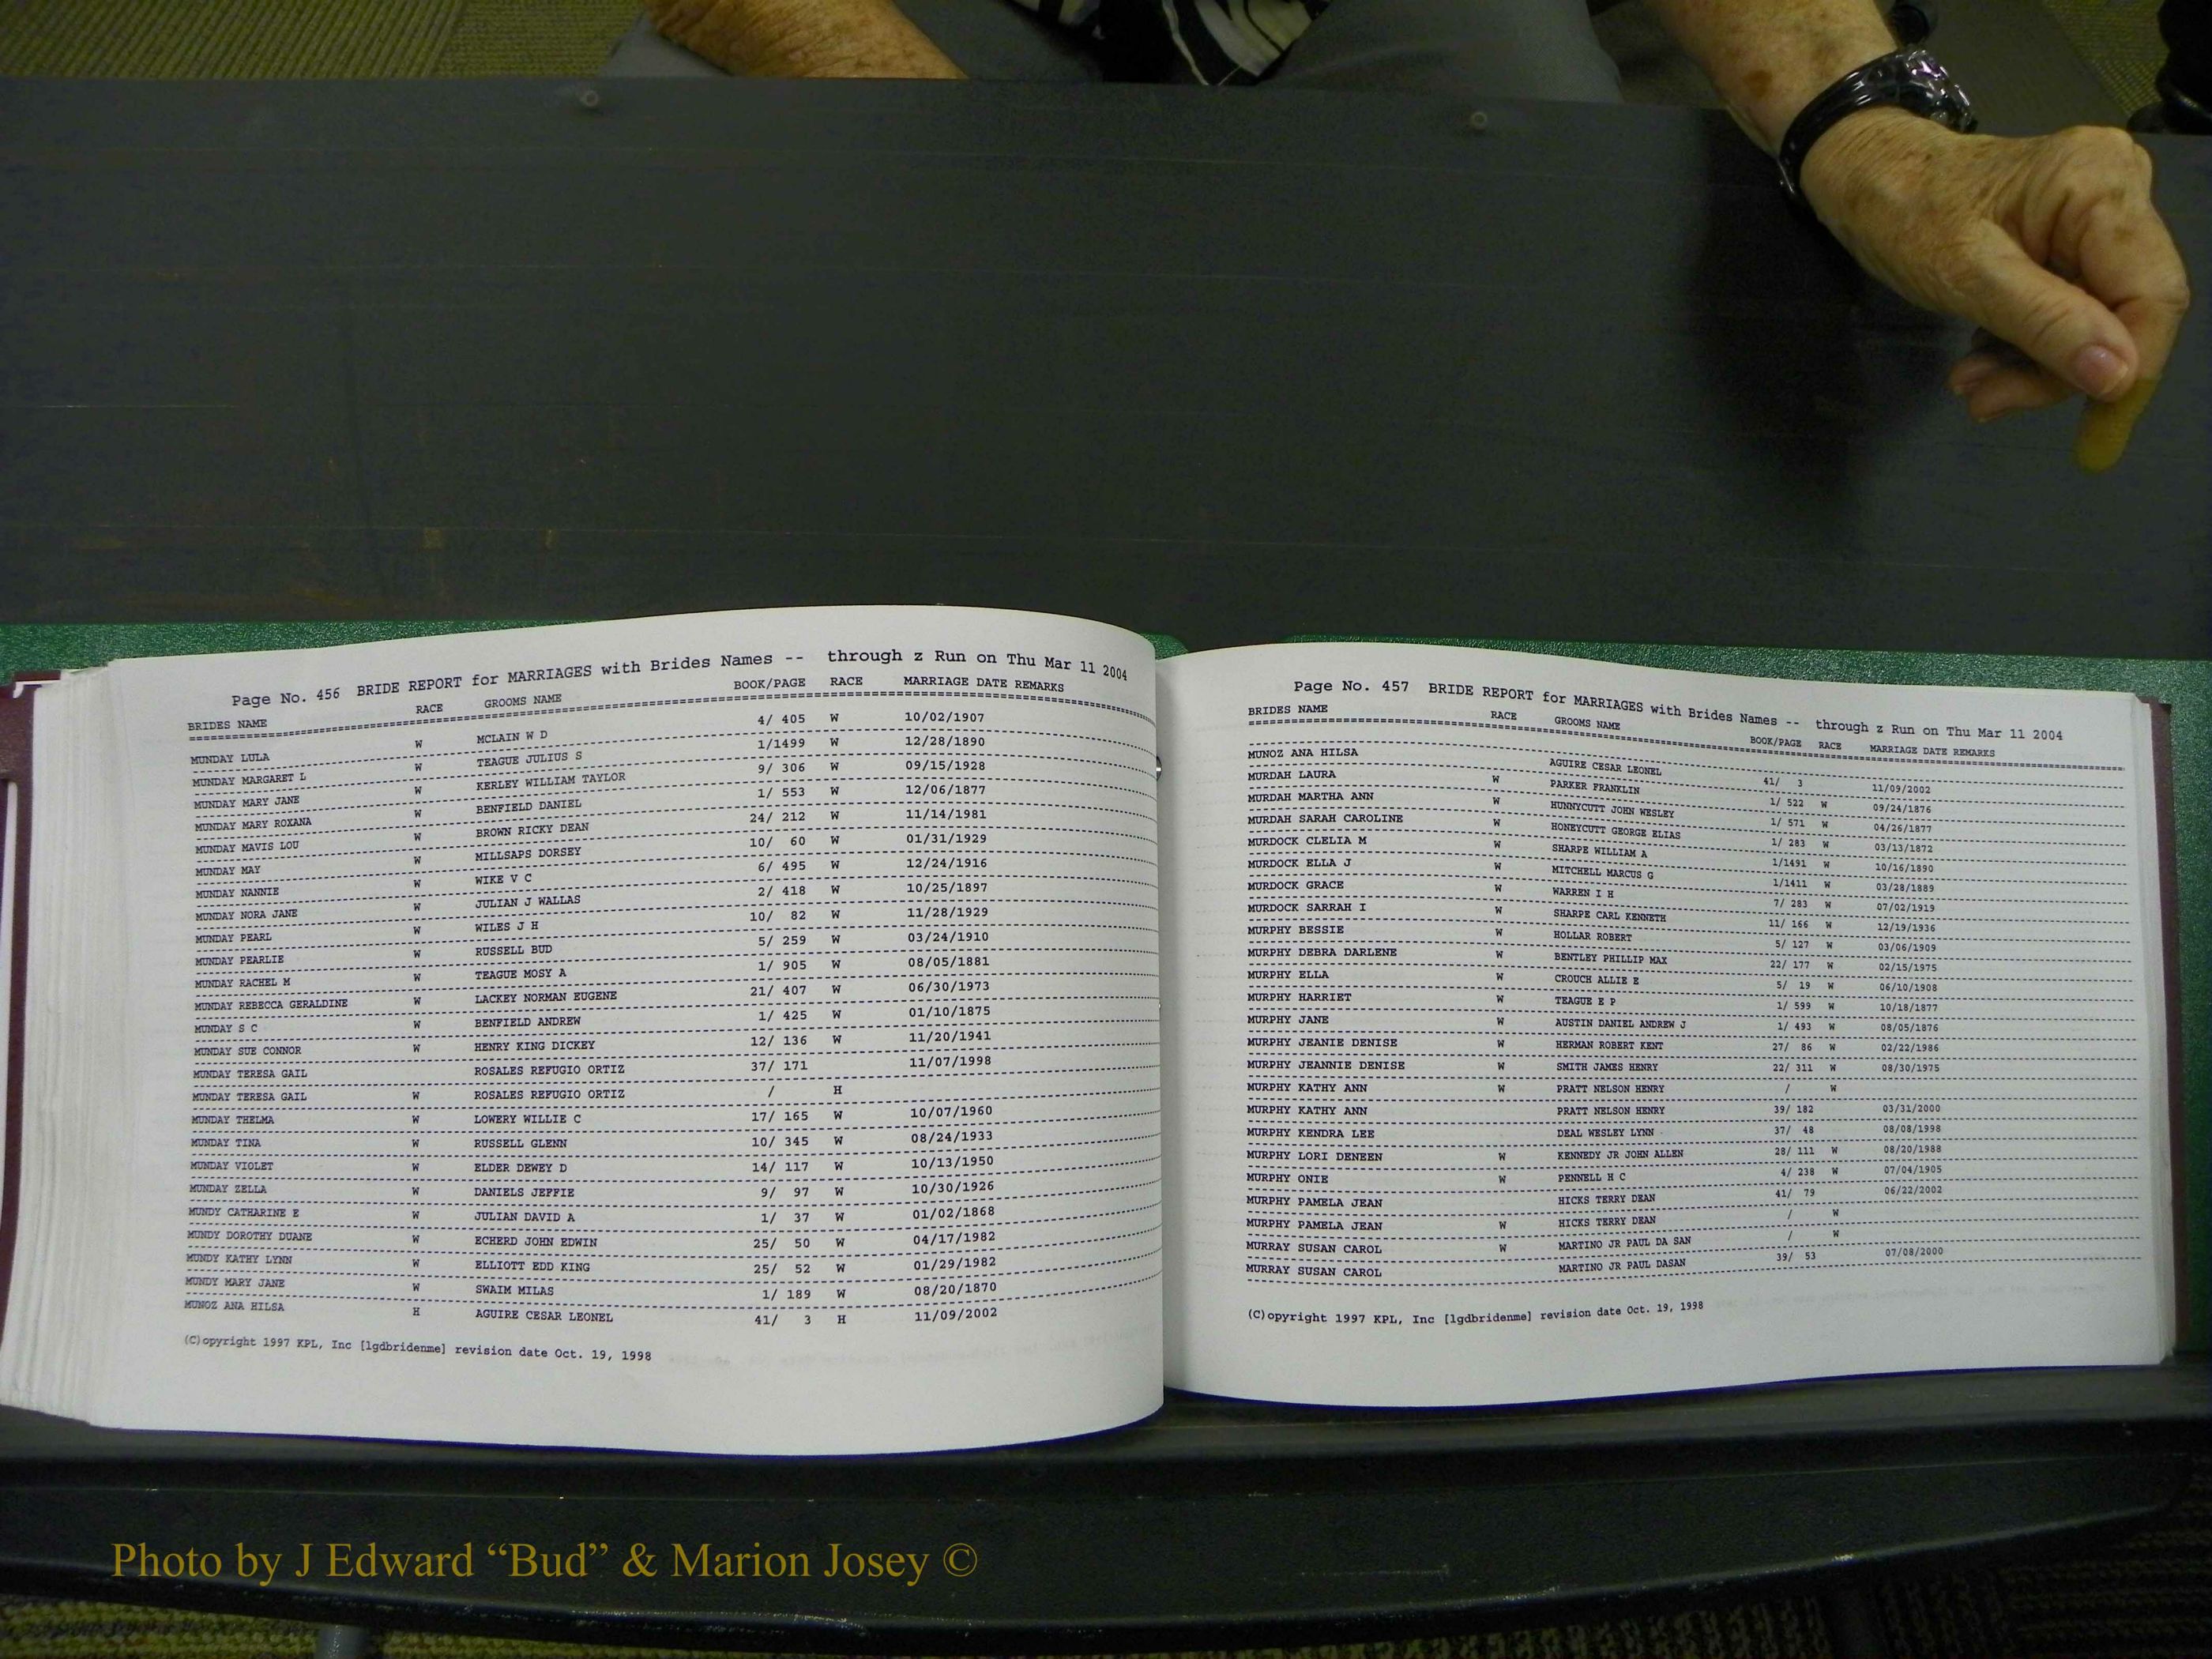 Page No. 456 BRIDE REPORT for MARRIAGES with Brides Names -- through z Run on Thu Mar 11 2004
BRIDES NAME RACE GROOMS NAME BOOK/PAGE RACE MARRIAGE DATE REMARKS
MUNDAY LULA W MCLAIN W D 4/ 405 W 10/02/1907
MUNDAY MARGARET L W TEAGUE JULIUS S 1/1499 W 12/28/1890
MUNDAY MARY JANE W KERLEY WILLIAM TAYLOR 9/ 306 W 09/15/1928
MUNDAY MARY ROXANA W BENFIELD DANIEL 1/ 553 W 12/06/1877
MUNDAY MAVIS LOU W BROWN RICKY DEAN 24/ 212 W 11/14/1981
MUNDAY MAY W MILLSAPS DORSEY 10/ 60 W 01/31/1929
MUNDAY NANNIE W WIKE V C 6/ 495 W 12/24/1916
MUNDAY NORA JANE W JULIAN J WALLAS 2/ 418 W 10/25/1897
MUNDAY PEARL W WILES J H 10/ 82 W 11/28/1929
MUNDAY PEARLIE W RUSSELL BUD 5/ 259 W 03/24/1910
MUNDAY RACHEL M W TEAGUE MOSY A 1/ 905 W 08/05/1881
MUNDAY REBECCA GERALDINE W LACKEY NORMAN EUGENE 21/ 407 W 06/30/1973
MUNDAY S C W BENFIELD ANDREW 1/ 425 W 01/10/1875
MUNDAY SUE CONNOR W HENRY KING DICKEY 12/ 136 W 11/20/1941
MUNDAY TERESA GAIL ROSALES REFUGIO ORTIZ 37/ 171 11/07/1998
MUNDAY TERESA GAIL W ROSALES REFUGIO ORTIZ / H
MUNDAY THELMA W LOWERY WILLIE C 17/ 165 W 10/07/1960
MUNDAY TINA W RUSSELL GLENN 10/ 345 W 08/24/1933
MUNDAY VIOLET W ELDER DEWEY D 14/ 117 W 10/13/1950
MUNDAY ZELLA W DANIELS JEFFIE 9/ 97 W 10/30/1926
MUNDY CATHARINE E W JULIAN DAVID A 1/ 37 W 01/02/1868
MUNDY DOROTHY DUANE W ECHERD JOHN EDWIN 25/ 50 W 04/17/1982
MUNDY KATHY LYNN W ELLIOTT EDD KING 25/ 52 W 01/29/1982
MUNDY MARY JANE W SWAIM MILAS 1/ 189 W 08/20/1870
MUNOZ ANA HILSA H AGUIRE CESAR LEONEL 41/ 3 H 11/09/2002
(C)opyright 1997 KPL, Inc [lgdbridenme] revision date Oct. 19, 1998
Page No. 457 BRIDE REPORT for MARRIAGES with Brides Names -- through z Run on Thu Mar 11 2004
BRIDES NAME RACE GROOMS NAME BOOK/PAGE RACE MARRIAGE DATE REMARKS
MUNOZ ANA HILSA AGUIRE CESAR LEONEL 41/ 3 11/09/2002
MURDAH LAURA W PARKER FRANKLIN 1/ 522 W 09/24/1876
MURDAH MARTHA ANN W HUNNYCUTT JOHN WESLEY 1/ 571 W 04/26/1877
MURDAH SARAH CAROLINE W HONEYCUTT GEORGE ELIAS 1/ 283 W 03/13/1872
MURDOCK CLELIA M W SHARPE WILLIAM A 1/1491 W 10/16/1890
MURDOCK ELLA J W MITCHELL MARCUS G 1/1411 W 03/28/1889
MURDOCK GRACE W WARREN I H 7/ 283 W 07/02/1919
MURDOCK SARRAH I W SHARPE CARL KENNETH 11/ 166 W 12/19/1936
MURPHY BESSIE W HOLLAR ROBERT 5/ 127 W 03/06/1909
MURPHY DEBRA DARLENE W BENTLEY PHILLIP MAX 22/ 177 W 02/15/1975
MURPHY ELLA W CROUCH ALLIE E 5/ 19 W 06/10/1908
MURPHY HARRIET W TEAGUE E P 1/ 599 W 10/18/1877
MURPHY JANE W AUSTIN DANIEL ANDREW J 1/ 493 W 08/05/1876
MURPHY JEANIE DENISE W HERMAN ROBERT KENT 27/ 86 W 02/22/1986
MURPHY JEANNIE DENISE W SMITH JAMES HENRY 22/ 311 W 08/30/1975
MURPHY KATHY ANN W PRATT NELSON HENRY / W
MURPHY KATHY ANN PRATT NELSON HENRY 39/ 182 03/31/2000
MURPHY KENDRA LEE DEAL WESLEY LYNN 37/ 48 08/08/1998
MURPHY LORI DENEEN W KENNEDY JR JOHN ALLEN 28/ 111 W 08/20/1988
MURPHY ONIE W PENNELL H C 4/ 238 W 07/04/1905
MURPHY PAMELA JEAN HICKS TERRY DEAN 41/ 79 06/22/2002
MURPHY PAMELA JEAN W HICKS TERRY DEAN / W
MURRAY SUSAN CAROL W MARTINO JR PAUL DA SAN / W
MURRAY SUSAN CAROL MARTINO JR PAUL DASAN 39/ 53 07/08/2000
(C)opyright 1997 KPL, Inc [lgdbridenme] revision date Oct. 19, 1998
Photo by J Edward “Bud” & Marion Josey ©